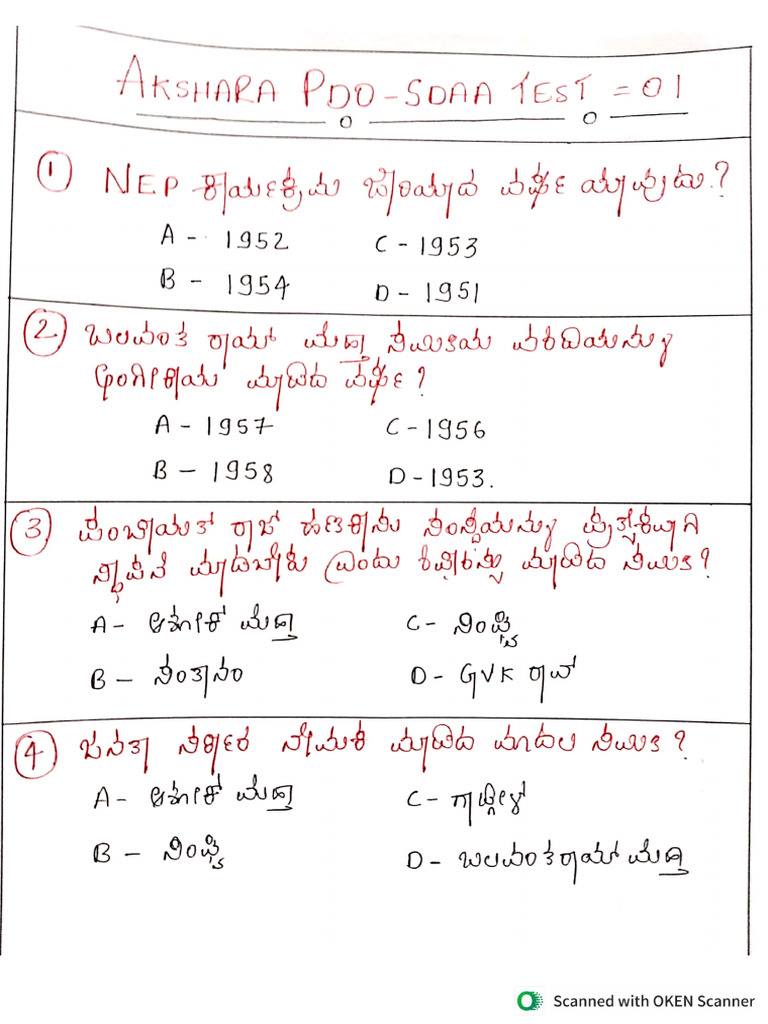 AKSHARA PDO-SDAA TEST = 01
① NEP ಕಾರ್ಯಕ್ರಮ ಜಾರಿಯಾದ ವರ್ಷ ಯಾವುದು.?
A - 1952 C - 1953
B - 1954 D - 1951
② ಬಲವಂತ ರಾಯ್ ಮೆಹ್ತಾ ಸಮಿತಿಯ ವರದಿಯನ್ನು
ಅಂಗೀಕಾರ ಮಾಡಿದ ವರ್ಷ ?
A - 1957 C - 1956
B - 1958 D - 1953.
③ ಪಂಚಾಯತ್ ರಾಜ್ ಹಣಕಾಸು ಸಂಸ್ಥೆಯನ್ನು ಪ್ರತ್ಯೇಕವಾಗಿ
ಸ್ಥಾಪನೆ ಮಾಡಬೇಕು ಎಂದು ಶಿಫಾರಸ್ಸು ಮಾಡಿದ ಸಮಿತಿ ?
A - ಅಶೋಕ್ ಮೆಹ್ತಾ C - ಸಿಂಘ್ವಿ
B - ಸಂತಾನಂ D - GVK ರಾವ್
④ ಜನತಾ ಸರ್ಕಾರ ನೇಮಕ ಮಾಡಿದ ಮೊದಲ ಸಮಿತಿ ?
A - ಅಶೋಕ್ ಮೆಹ್ತಾ C - ಗಾಡ್ಗೀಳ್
B - ಸಿಂಘ್ವಿ D - ಬಲವಂತರಾಯ್ ಮೆಹ್ತಾ
Scanned with OKEN Scanner